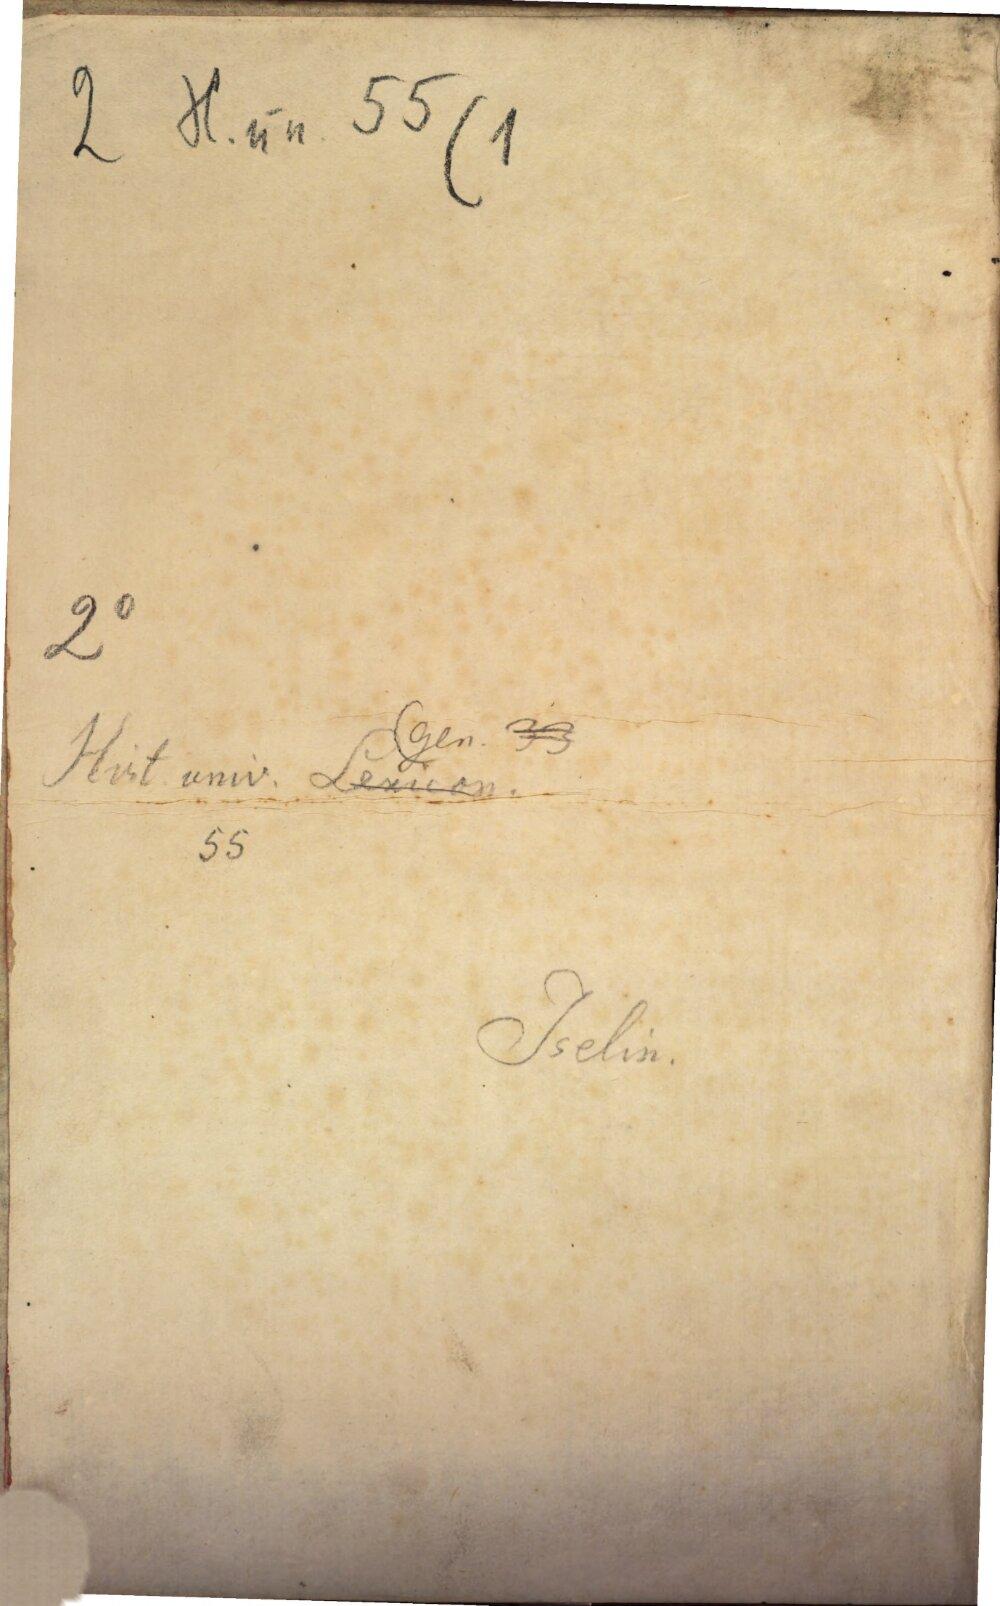 2 H. un. 55(1
2°
(gen. 33
Hist univ. Lexicon.
55
Iselin.